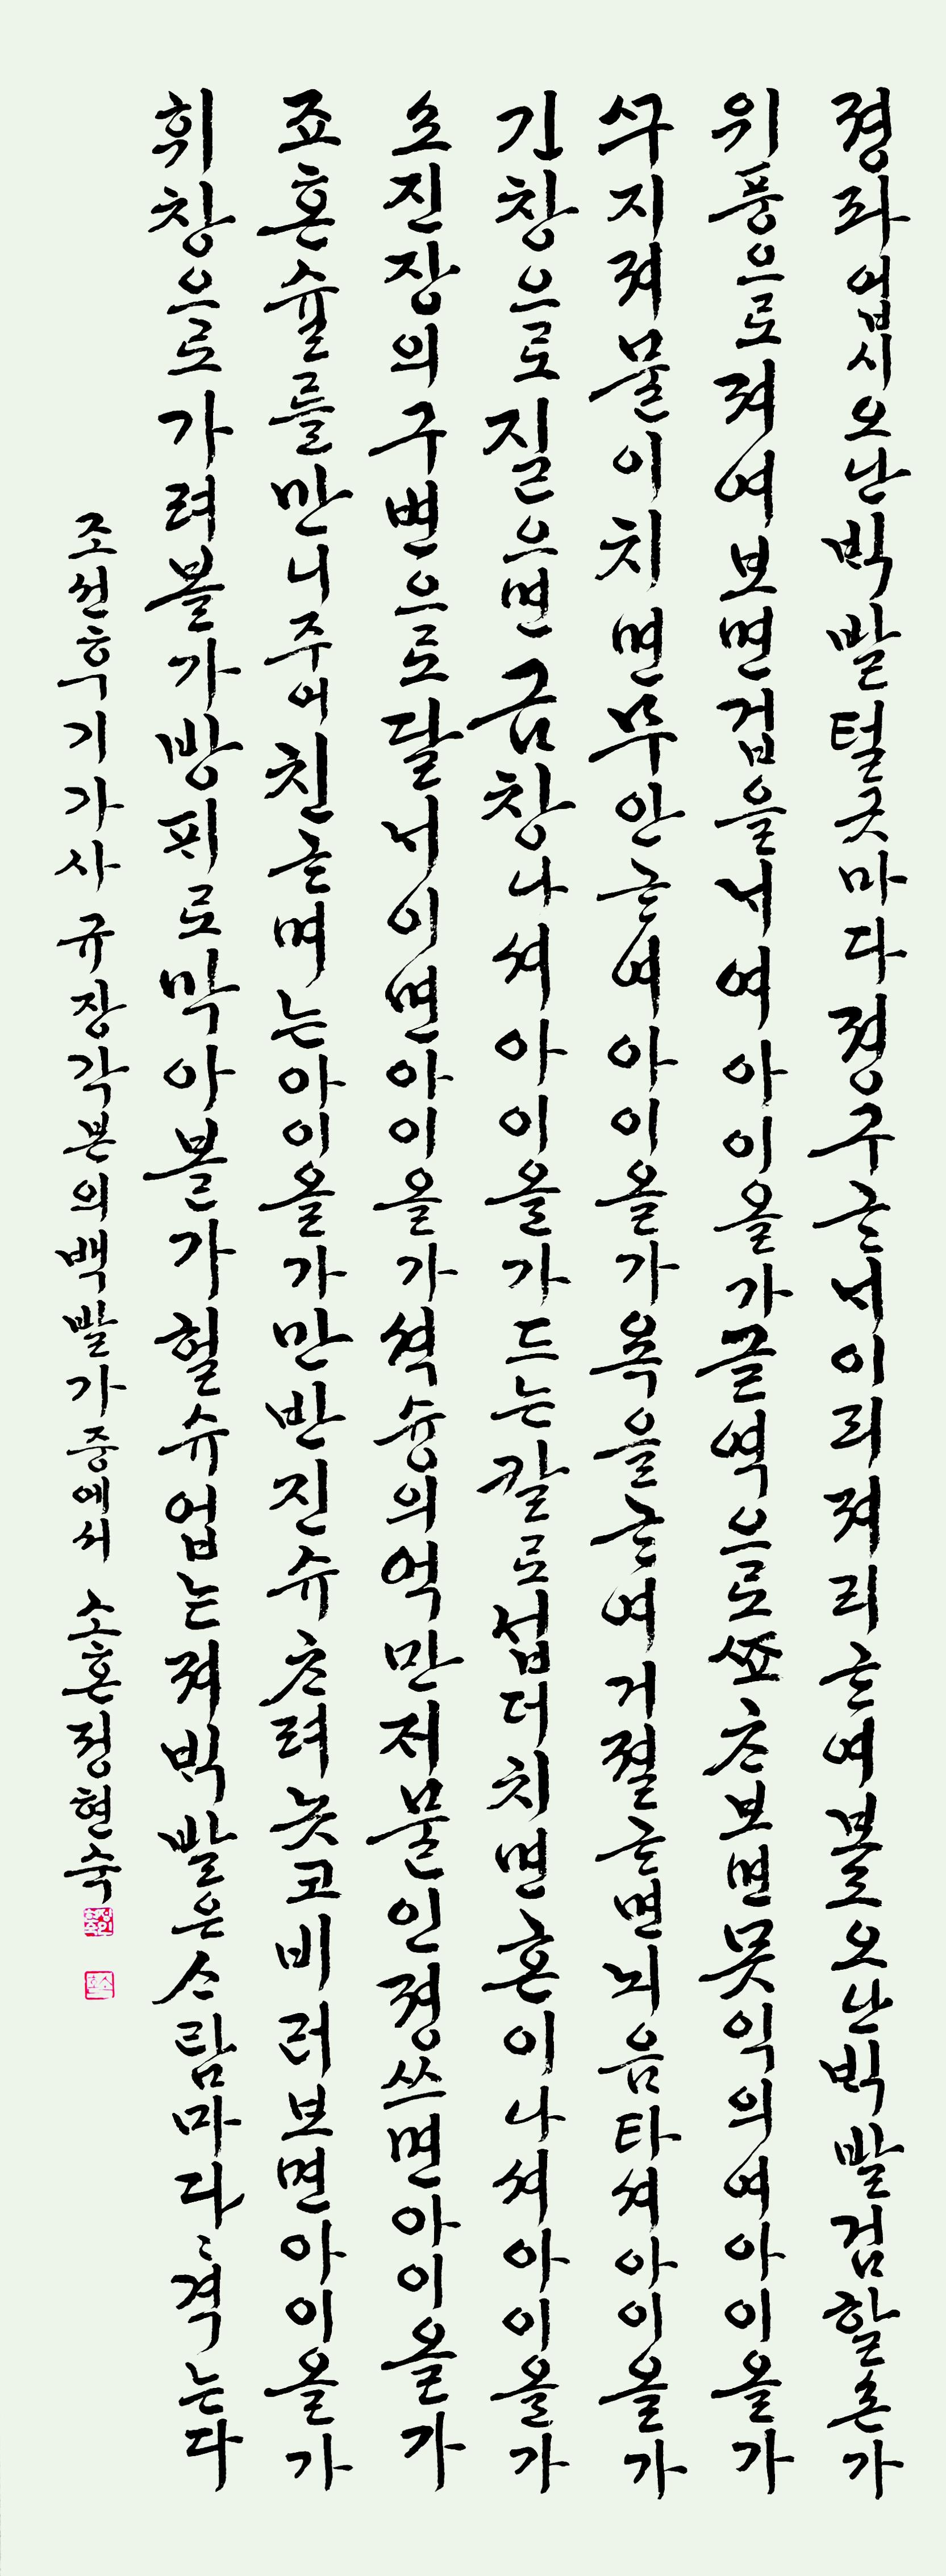 졍좌업시오난빅발털긋마다졍구ᄒᆞ네이리져리ᄒᆞ여볼로오난빅발검할손가
위풍으로져여보면겁을너여아이올가글역으로ᄶᅩᄎᆞ보면못익의여아이올가
ᄭᅮ지져물이치면무안ᄒᆞ여아이올가욕을ᄒᆞ여거졀ᄒᆞ면뇌음타셔아이올가
긴창으로질으면금창나셔아이올가드는칼로섭더치면혼이나셔아이올가
소진장의구변으로달너이면아이올가셕슝의억만저물인졍쓰면아이올가
죠흔슐를만니주어친ᄒᆞ며는아이올가만반진슈ᄎᆞ려놋코비러보면아이올가
휘창으로가려볼가방피로막아볼가헐슈업는져빅발은ᄉᆞ람마다〻격는다
조선후기가사 규장각본의백발가중에서 소흔정현숙